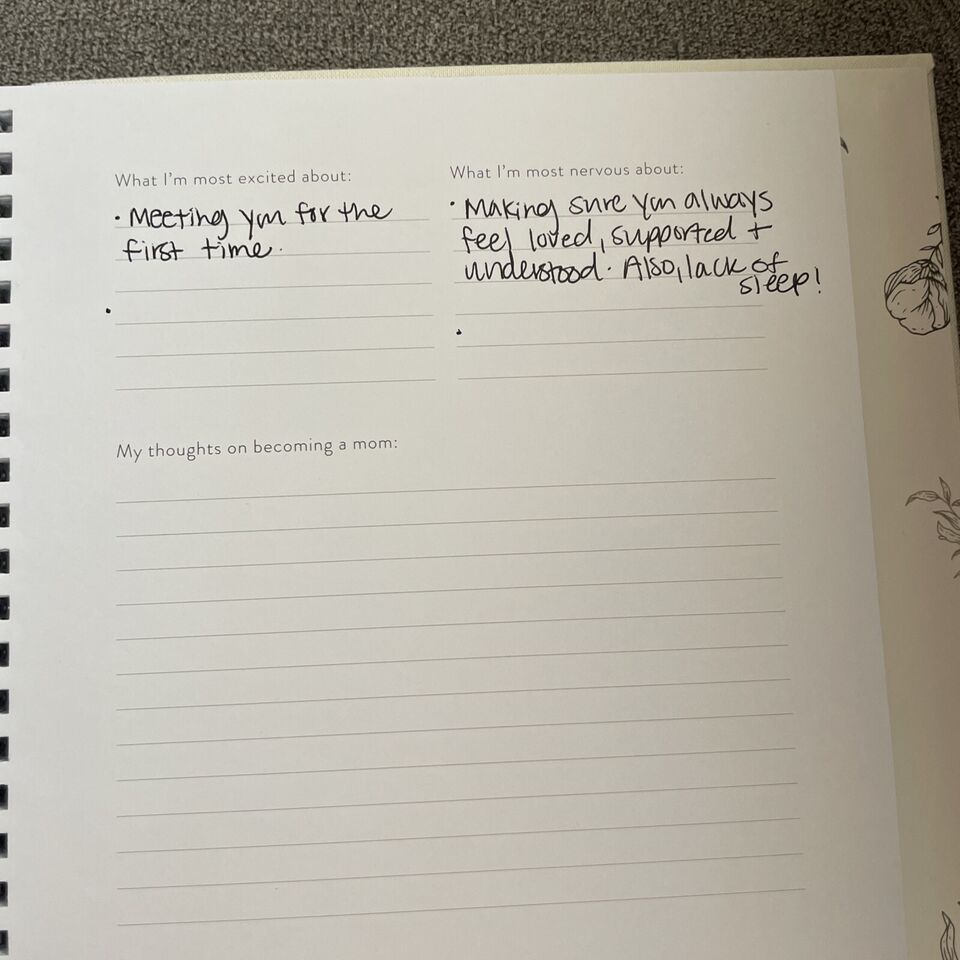 What I'm most excited about:
• Meeting you for the
first time.
•
What I'm most nervous about:
• Making sure you always
feel loved, supported +
understood. Also, lack of
sleep!
•
My thoughts on becoming a mom: